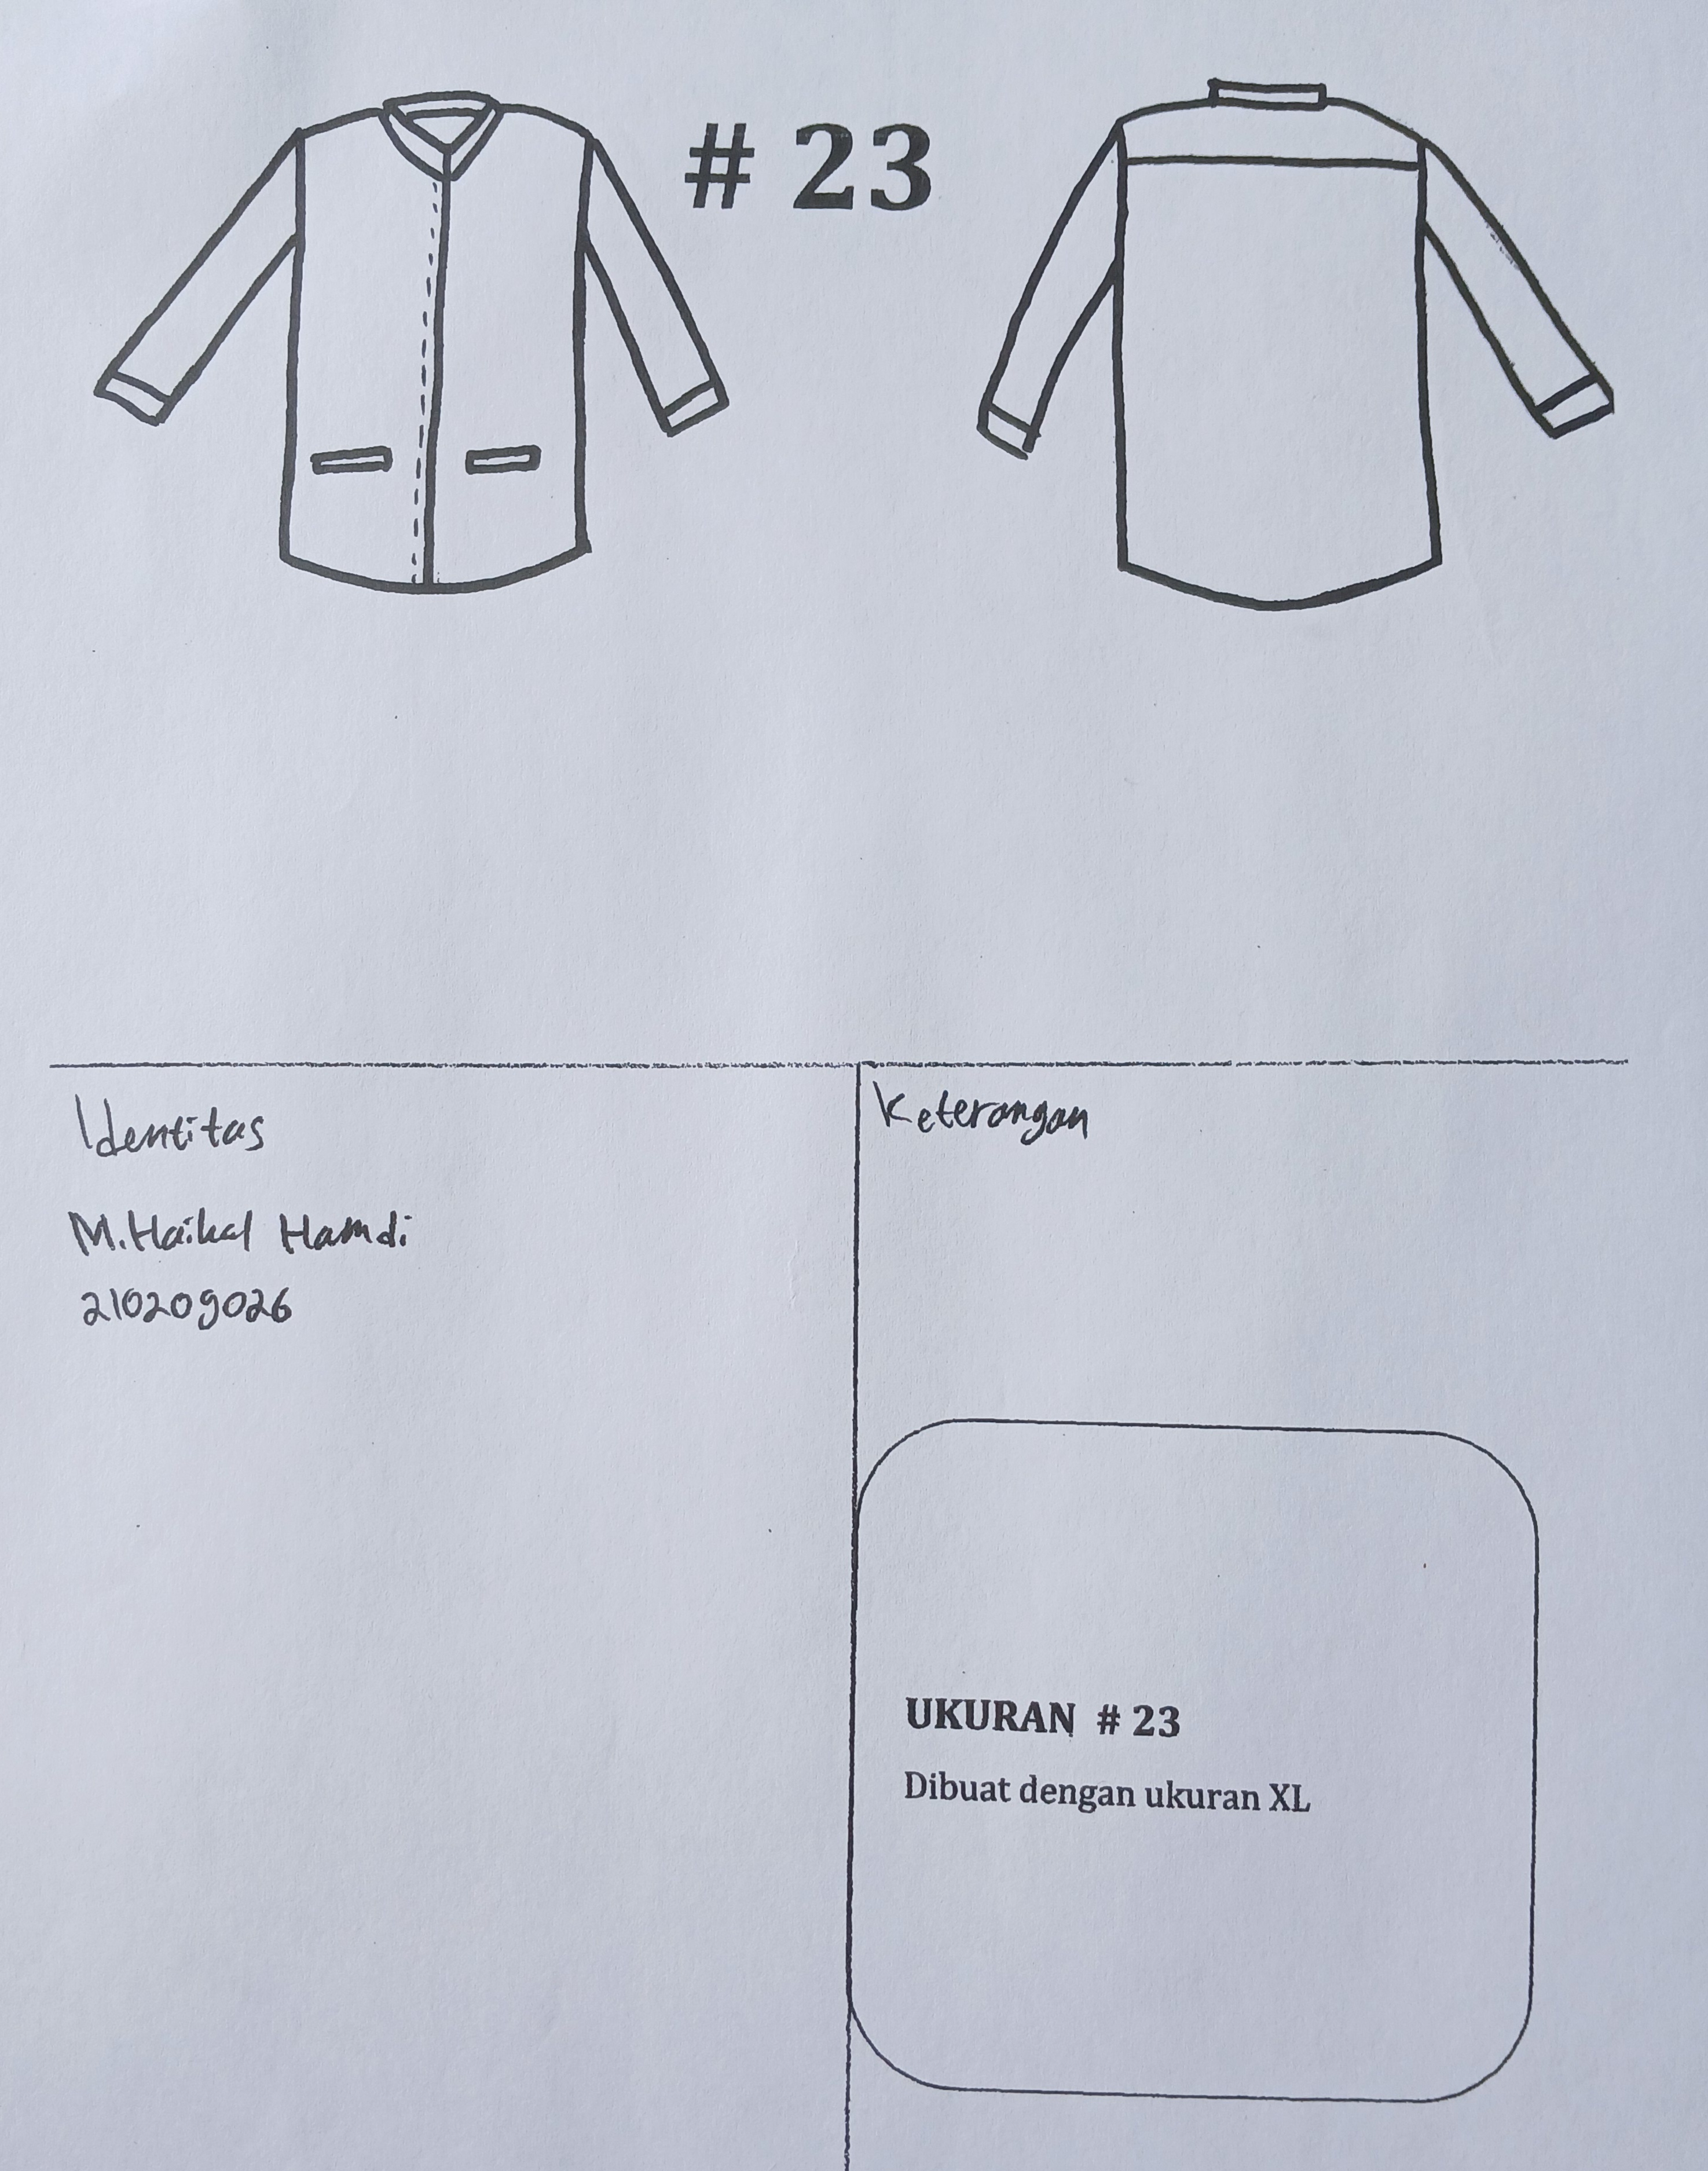 # 23
Identitas
M. Haikal Hamdi
210209026
Keterangan
UKURAN # 23
Dibuat dengan ukuran XL